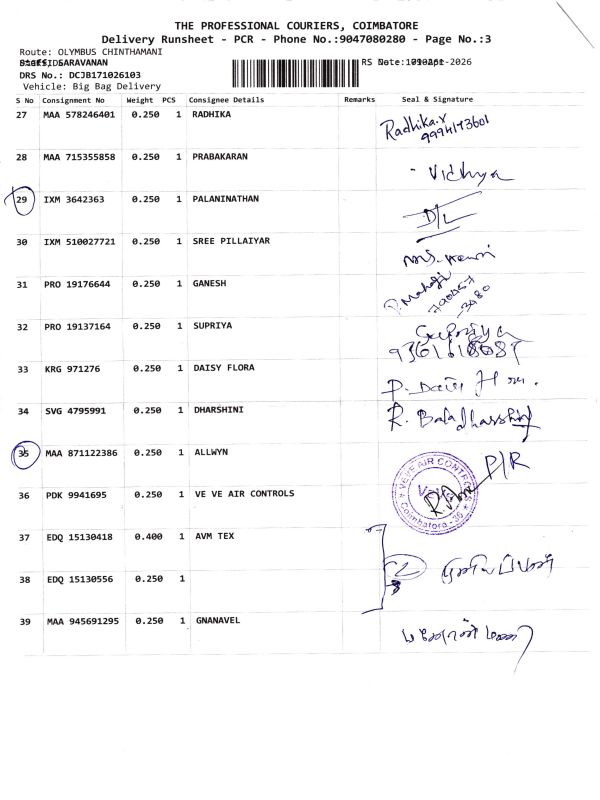 THE PROFESSIONAL COURIERS, COIMBATORE
Delivery Runsheet - PCR - Phone No.:9047080280 - Page No.:3
Route: OLYMBUS CHINTHAMANI
SARAVANAN
DRS No.: DCJB171026103
Vehicle: Big Bag Delivery
RS Date: -2026
S No Consignment No Weight PCS Consignee Details Remarks Seal & Signature
27 MAA 578246401 0.250 1 RADHIKA Radhika.V
28 MAA 715355858 0.250 1 PRABAKARAN - Vidhya
29 IXM 3642363 0.250 1 PALANINATHAN D/L
30 IXM 510027721 0.250 1 SREE PILLAIYAR
31 PRO 19176644 0.250 1 GANESH
32 PRO 19137164 0.250 1 SUPRIYA Supriya
33 KRG 971276 0.250 1 DAISY FLORA P. Daisy
34 SVG 4795991 0.250 1 DHARSHINI R. Baladharshini
35 MAA 871122386 0.250 1 ALLWYN P/R
36 PDK 9941695 0.250 1 VE VE AIR CONTROLS VEVE AIR CONTROLS Coimbatore
37 EDQ 15130418 0.400 1 AVM TEX 2
38 EDQ 15130556 0.250 1
39 MAA 945691295 0.250 1 GNANAVEL